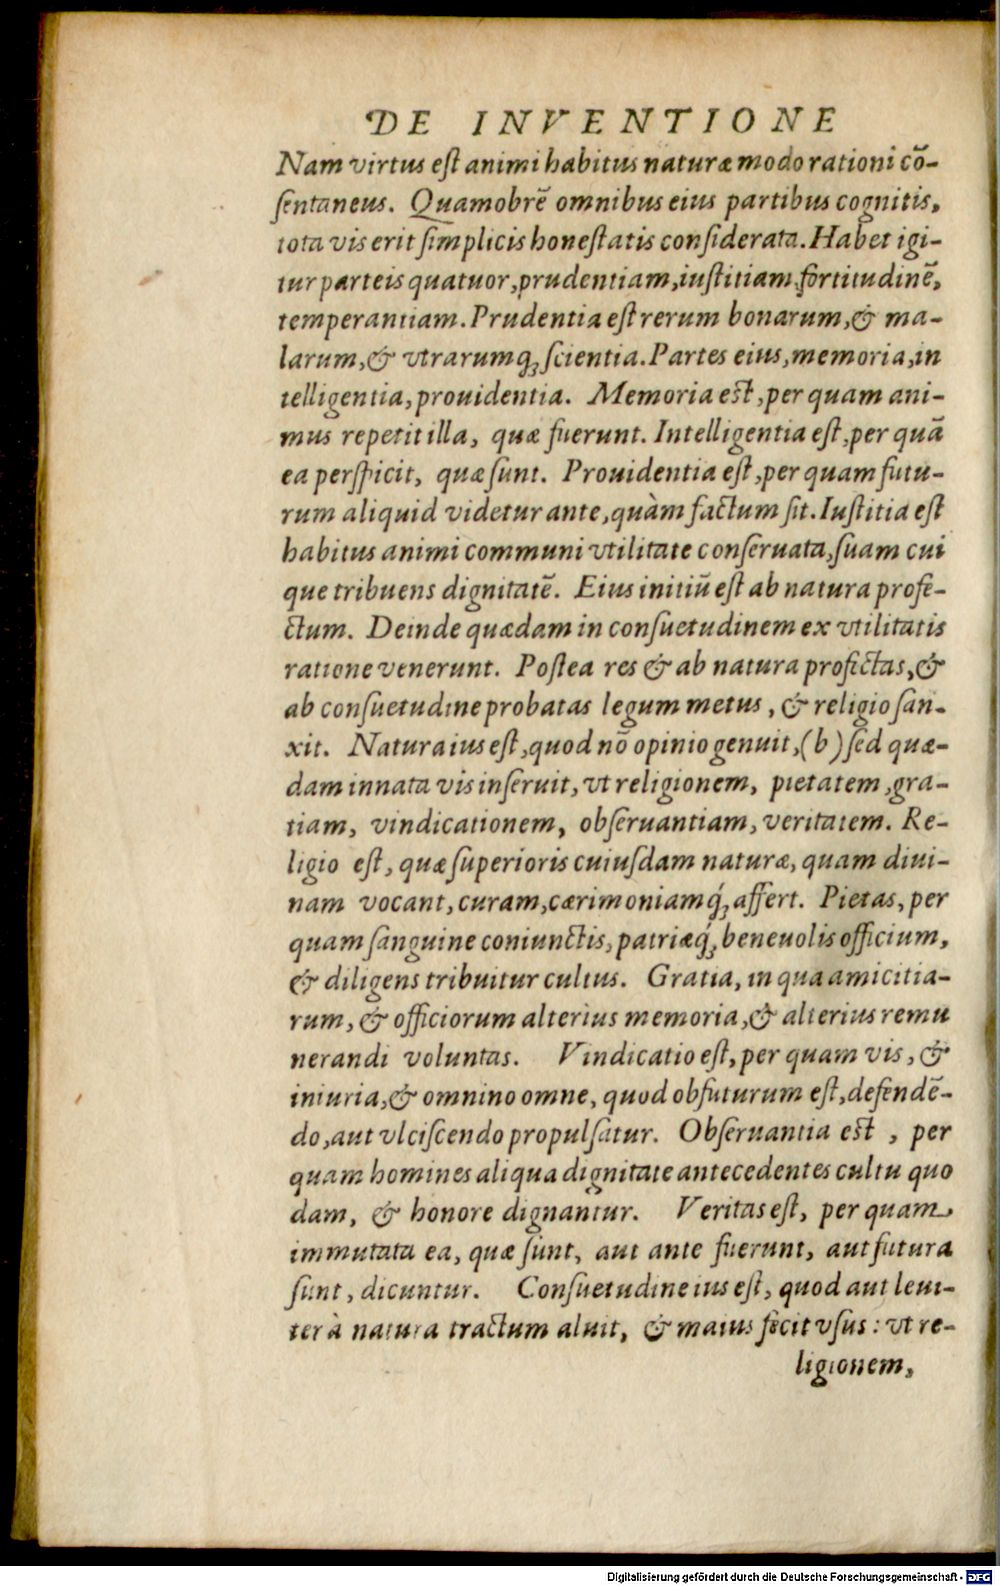 DE INVENTIONE
Nam virtus est animi habitus naturæ modo rationi cō-
sentaneus. Quamobrē omnibus eius partibus cognitis,
tota vis erit simplicis honestatis considerata. Habet igi-
tur parteis quatuor, prudentiam, iustitiam, fortitudinē,
temperantiam. Prudentia est rerum bonarum, & ma-
larum, & vtrarumq; scientia. Partes eius, memoria, in
telligentia, prouidentia. Memoria est, per quam ani-
mus repetit illa, quæ fuerunt. Intelligentia est, per quā
ea perspicit, quæ sunt. Prouidentia est, per quam futu-
rum aliquid videtur ante, quàm factum sit. Iustitia est
habitus animi communi vtilitate conseruata, suam cui
que tribuens dignitatē. Eius initiū est ab natura profe-
ctum. Deinde quædam in consuetudinem ex vtilitatis
ratione venerunt. Postea res & ab natura profectas, &
ab consuetudine probatas legum metus, & religio san-
xit. Natura ius est, quod nō opinio genuit, (b) sed quæ-
dam innata vis inseruit, vt religionem, pietatem, gra-
tiam, vindicationem, obseruantiam, veritatem. Re-
ligio est, quæ superioris cuiusdam naturæ, quam diui-
nam vocant, curam, cærimoniamq́; affert. Pietas, per
quam sanguine coniunctis, patriæq́; beneuolis officium,
& diligens tribuitur cultus. Gratia, in qua amicitia-
rum, & officiorum alterius memoria, & alterius remu
nerandi voluntas. Vindicatio est, per quam vis, &
iniuria, & omnino omne, quod obfuturum est, defendē-
do, aut vlciscendo propulsatur. Obseruantia est, per
quam homines aliqua dignitate antecedentes cultu quo
dam, & honore dignantur. Veritas est, per quam
immutata ea, quæ sunt, aut ante fuerunt, aut futura
sunt, dicuntur. Consuetudine ius est, quod aut leui-
ter à natura tractum aluit, & maius fecit vsus: vt re-
ligionem,
Digitalisierung gefördert durch die Deutsche Forschungsgemeinschaft - DFG